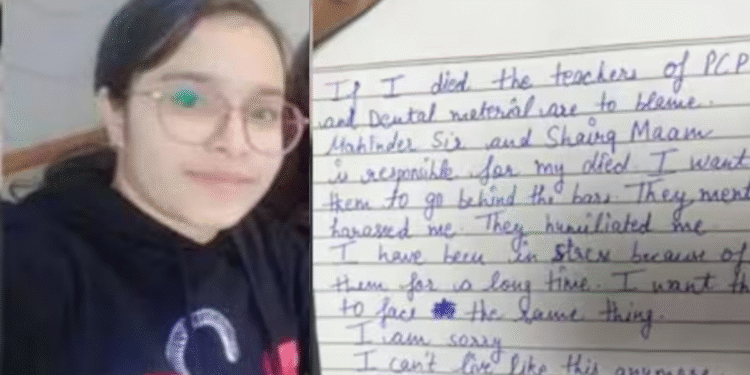 If I died the teachers of PCP
and Dental material are to blame.
Mahinder Sir and Shairq Maam
is responsible for my died. I want
them to go behind the bars. They ment
harassed me. They humiliated me
I have been in stress because of
them for a long time. I want th
to face the same thing.
I am sorry
I can't live like this anymore.